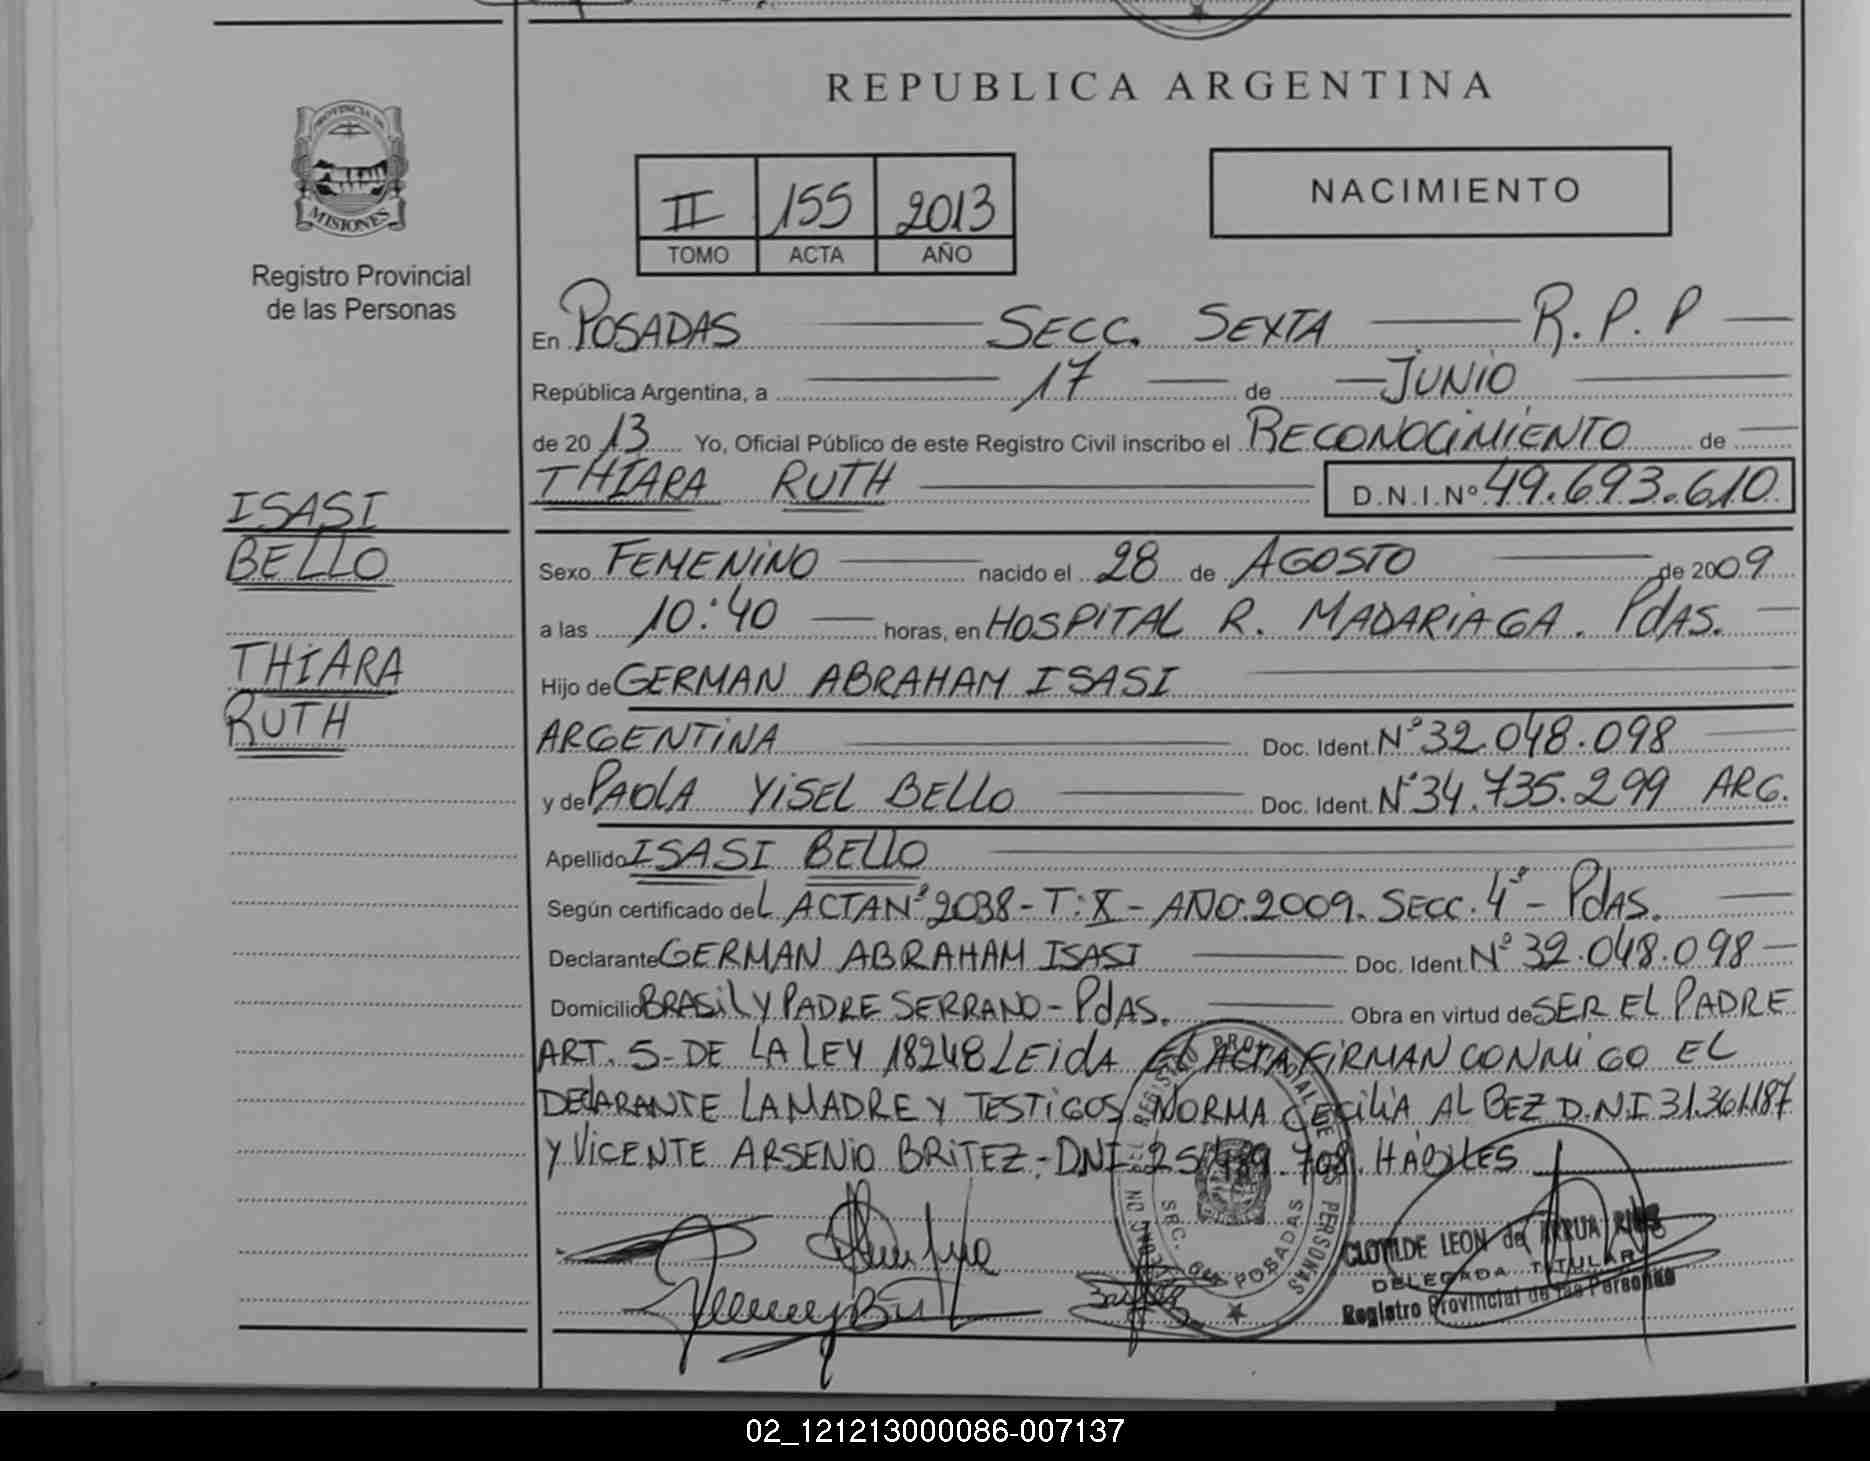 REPUBLICA ARGENTINA
PROVINCIA DE
MISIONES
Registro Provincial
de las Personas
II 155 2013
TOMO ACTA AÑO
NACIMIENTO
En POSADAS SECC. SEXTA R.P.P
República Argentina, a 17 de JUNIO
de 20 13 Yo, Oficial Público de este Registro Civil inscribo el RECONOCIMIENTO de
THIARA RUTH D.N.I.Nº 49.693.610
ISASI
BELLO
THIARA
RUTH
Sexo FEMENINO nacido el 28 de AGOSTO de 2009
a las 10:40 horas, en HOSPITAL R. MADARIAGA. PdAS.
Hijo de GERMAN ABRAHAM ISASI
ARGENTINA Doc. Ident. Nº 32.048.098
y de PAOLA YISEL BELLO Doc. Ident. Nº 34.735.299 ARG.
Apellido ISASI BELLO
Según certificado del ACTA Nº 2038 - T: X - AÑO: 2009. SECC. 4º - PdAS.
Declarante GERMAN ABRAHAM ISASI Doc. Ident. Nº 32.048.098
Domicilio BRASIL Y PADRE SERRANO - PdAS. Obra en virtud de SER EL PADRE
ART. 5 - DE LA LEY 18248 LEIDA EL ACTA FIRMAN CONMIGO EL
DECLARANTE LA MADRE Y TESTIGOS NORMA CECILIA ALBEZ D.N.I 31.361.187
Y VICENTE ARSENIO BRITEZ - DNI 25. .708. HÁBILES
REGISTRO PROVINCIAL DE LAS PERSONAS
POSADAS
CLOTILDE LEON de ARRUA
DELEGADA TITULAR
Registro Provincial de las Personas
02_121213000086-007137